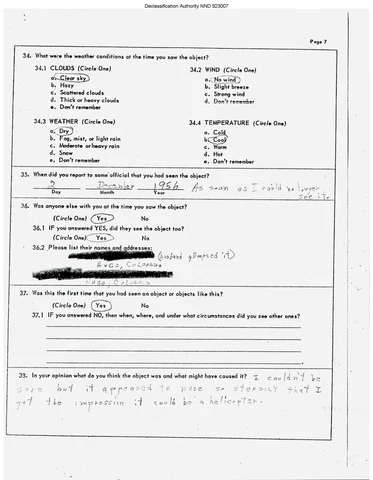 Declassification Authority NND 923007
Page 7
34. What were the weather conditions at the time you saw the object?
34.1 CLOUDS (Circle One) 34.2 WIND (Circle One)
a. Clear sky a. No wind
b. Hazy b. Slight breeze
c. Scattered clouds c. Strong wind
d. Thick or heavy clouds d. Don't remember
e. Don't remember
34.3 WEATHER (Circle One) 34.4 TEMPERATURE (Circle One)
a. Dry a. Cold
b. Fog, mist, or light rain b. Cool
c. Moderate or heavy rain c. Warm
d. Snow d. Hot
e. Don't remember e. Don't remember
35. When did you report to some official that you had seen the object?
2 December 1956 As soon as I could no longer
Day Month Year see it.
36. Was anyone else with you at the time you saw the object?
(Circle One) Yes No
36.1 IF you answered YES, did they see the object too?
(Circle One) Yes No
36.2 Please list their names and addresses:
(husband glimpsed it)
Colorado
37. Was this the first time that you had seen an object or objects like this?
(Circle One) Yes No
37.1 IF you answered NO, then when, where, and under what circumstances did you see other ones?
33. In your opinion what do you think the object was and what might have caused it? I couldn't be
sure but it appeared to so steadily that I
got the impression it could be a helicopter.